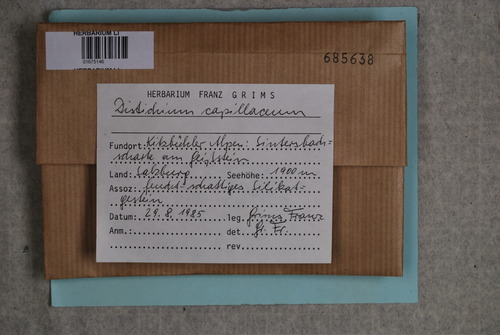 HERBARIUM LI
01675146
685638
HERBARIUM FRANZ GRIMS
Distichium capillaceum
Fundort: Kitzbühler Alpen: Sintersbach=
scharte am Geißstein
Land: Salzburg Seehöhe: 1900 m
Assoz: feucht-schattiges Silikat-
gestein
Datum: 29.8.1985 leg. Grims Franz
Anm.: det. Gr. Fr.
rev.